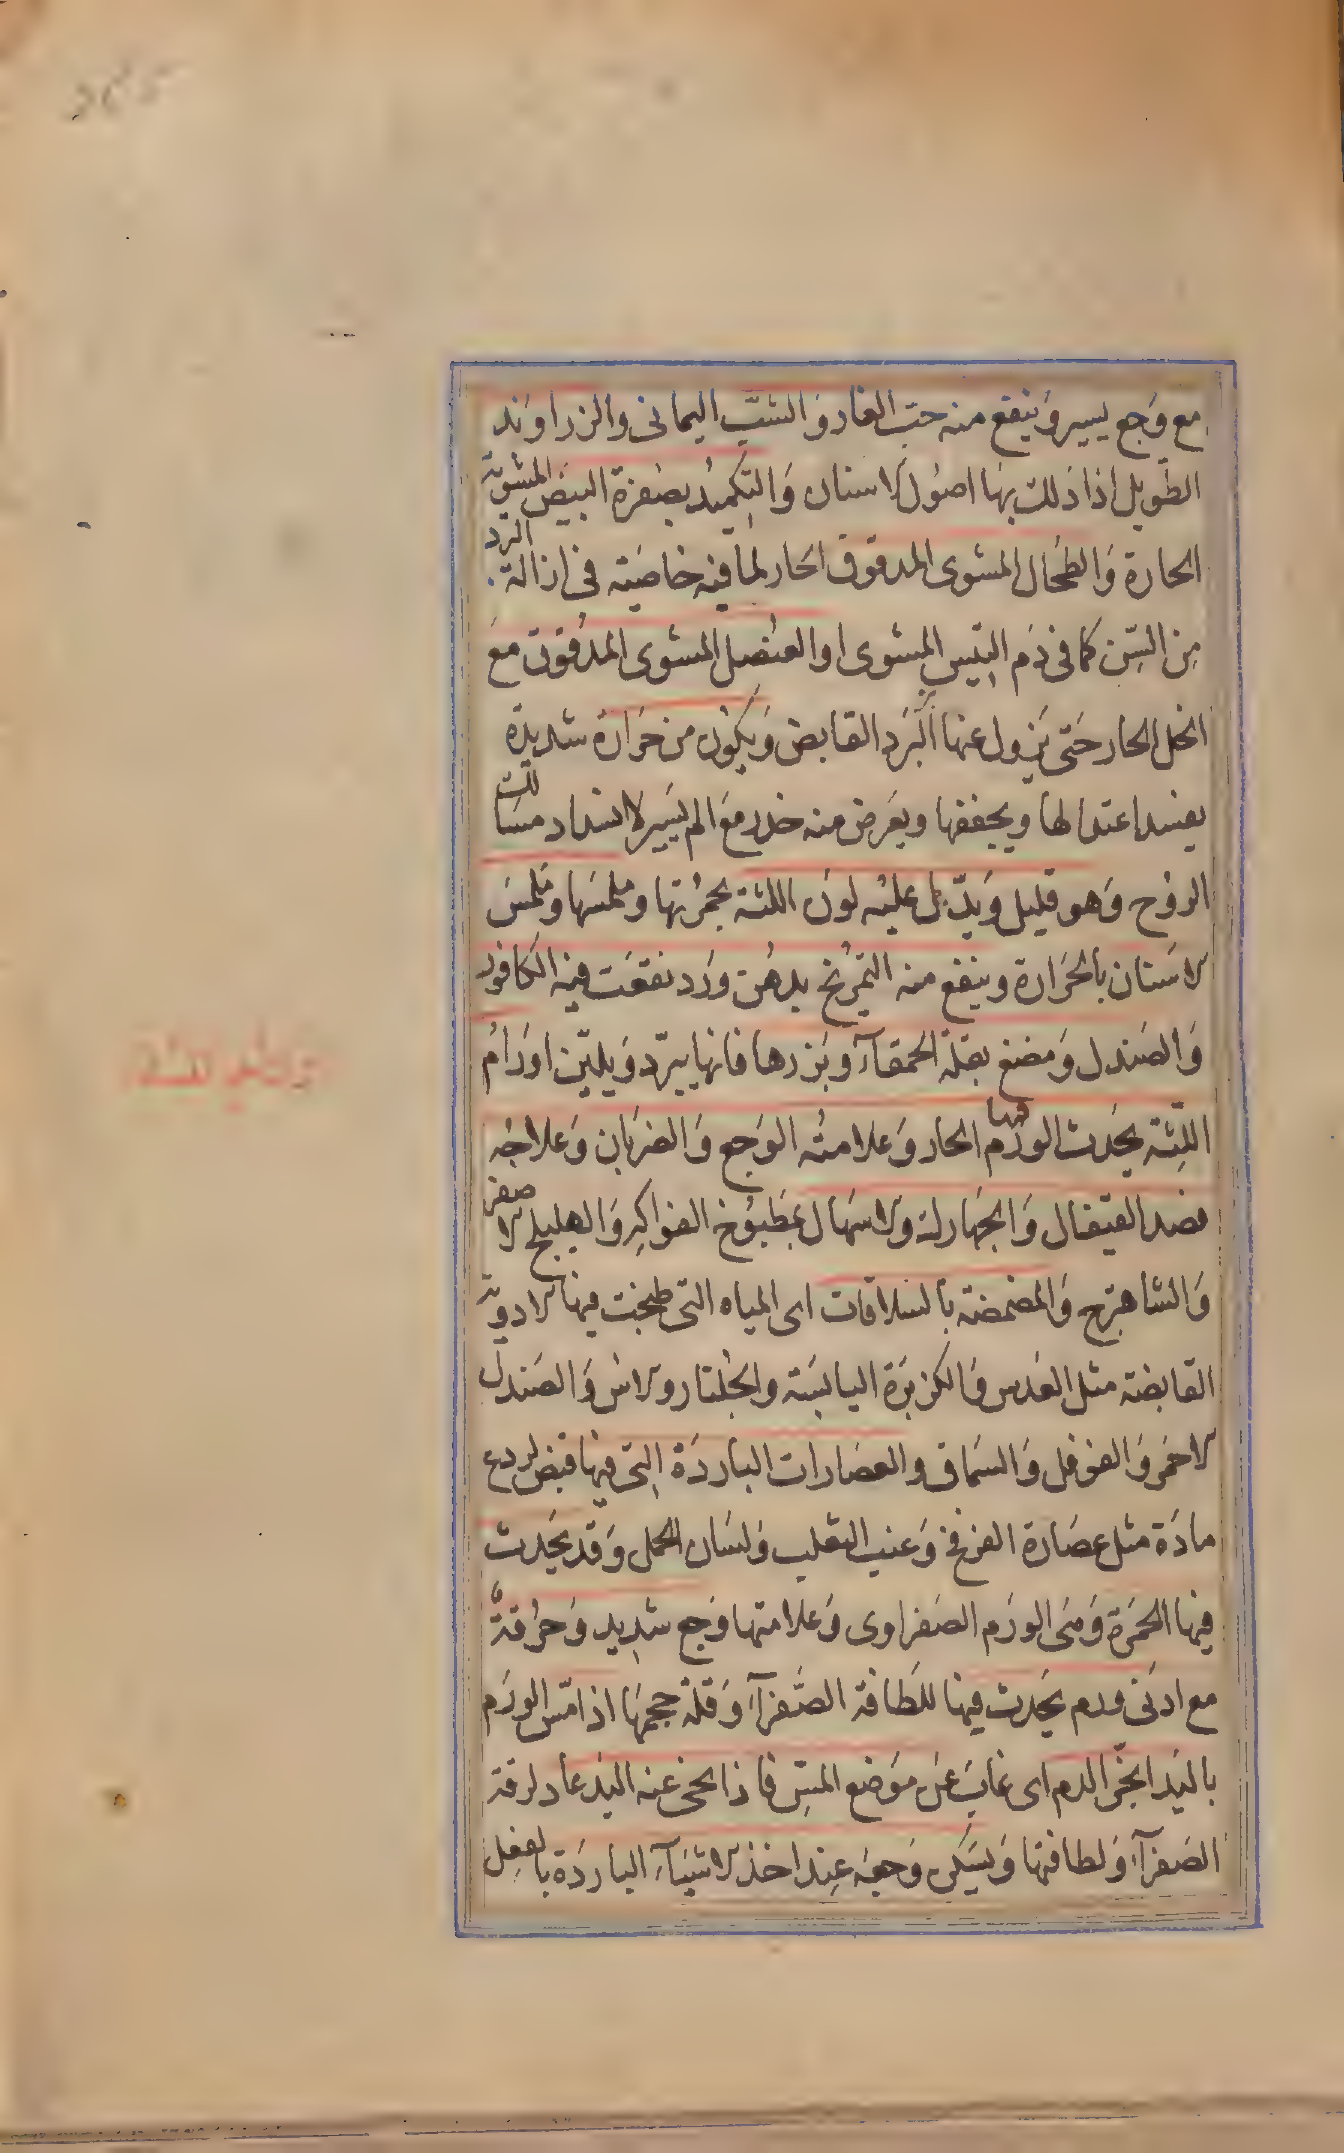 مع وَجع يسير وَينفع منه حبّ الغار وَالشبّ اليمانى والزراوَند
الطّويل اذا دُلكت بهَا اصُول الاسنان وَالتكميدُ بصُفرة البيَض المشويّة
الحارة وَالطحَال المشوى المدقوق الحَار لما فيه خاصَيّته فى ازالة البَرد
مِن السِّن كما فى دَم التيسِ المشوى او العنُصل المشوى المدقوق مَع
الخل الحار حَتى يَزول عنها البَرد القابض وَيكوُن من حَرَارة شديدة
يفسد اعتدالها ويجففها ويعَرض منه خدر مَع الم يَسير لانسداد مسَالك
الروُح وَهو قليل وَيَدّل عليْه لون اللثة بحمُرتها وملمسَها وملمسَ
الاسَنان بالحَرَارة وينفع منه التمرُيخ بدهُن وَرَد نقعَت فيه الكافور
وَالصَندل وَمضغ بقلة الحمقآء وبَزرها فانها يبرّد وَيليّن اورَامُ
اللِثّة يحَدث فيها الورَم الحار وَعلامتُه الوَجع وَالضرَبان وَعلاجُه
فصد القيفال وَالجهَارك والاسهَال بمَطبوُخ الفواكِه وَالهليلج الاصفر
وَالشاهترج وَالمضمضة بالسلاقات اى المياه التى طبخت فيهَا الادوية
القابضة مثل العَدس وَالكزبَرة اليابسَة والجُلنار والاسْ وَالصَندل
الاحمَر وَالفوفل وَالسّماق والعصَارات البَاردَة التِى فيهَا قبَض لردع
مادَة مثل عصَارة الفرفخ وَعنب الثعلب وَلسَان الحمل وَقد يحَدث
فيهَا الحمرَة وَهىَ الورَم الصفراوى وَعلامتهَا وَجع شديد وَحرُقةٌ
مع ادَنى ورم يحَدث فيهَا للطَافة الصَّفرآء وَقلة حجمهَا اذا مسّ الورَم
باليَد انجّر الدم اى غابَ عَن موَضع المسّ فاذا نحىّ عنه اليَد عاد لرقة
الصَفرآء وَلطافتها وَيسَكن وَجعَه عِند اخذ الاشيَآء البارِدَة بالفعِل